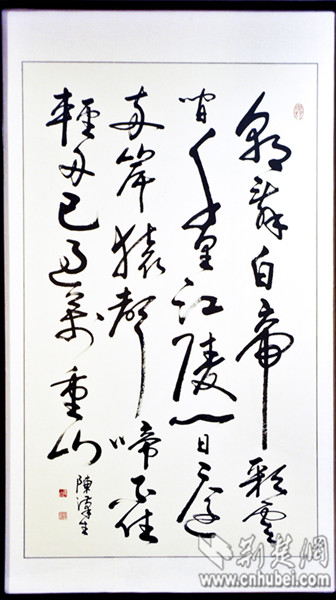 朝辭白帝彩雲
間千里江陵一日還
兩岸猿聲啼不住
輕舟已過萬重山
陳生
荆楚網
www.cnhubei.com